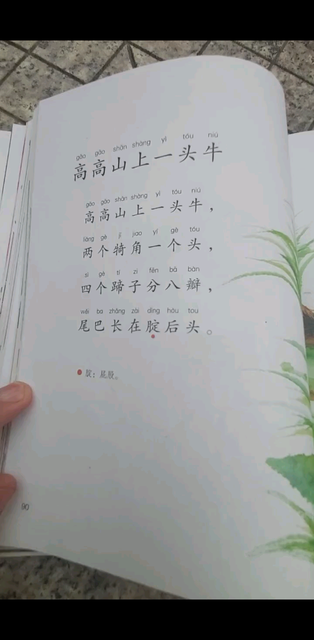 gāo gāo shān shàng yì tóu niú
高高山上一头牛
gāo gāo shān shàng yì tóu niú
高高山上一头牛，
liǎng gè jī jiao yí gè tóu
两个犄角一个头，
sì gè tí zi fēn bā bàn
四个蹄子分八瓣，
wěi ba zhǎng zài dìng hòu tou
尾巴长在腚后头。
腚：屁股。
90